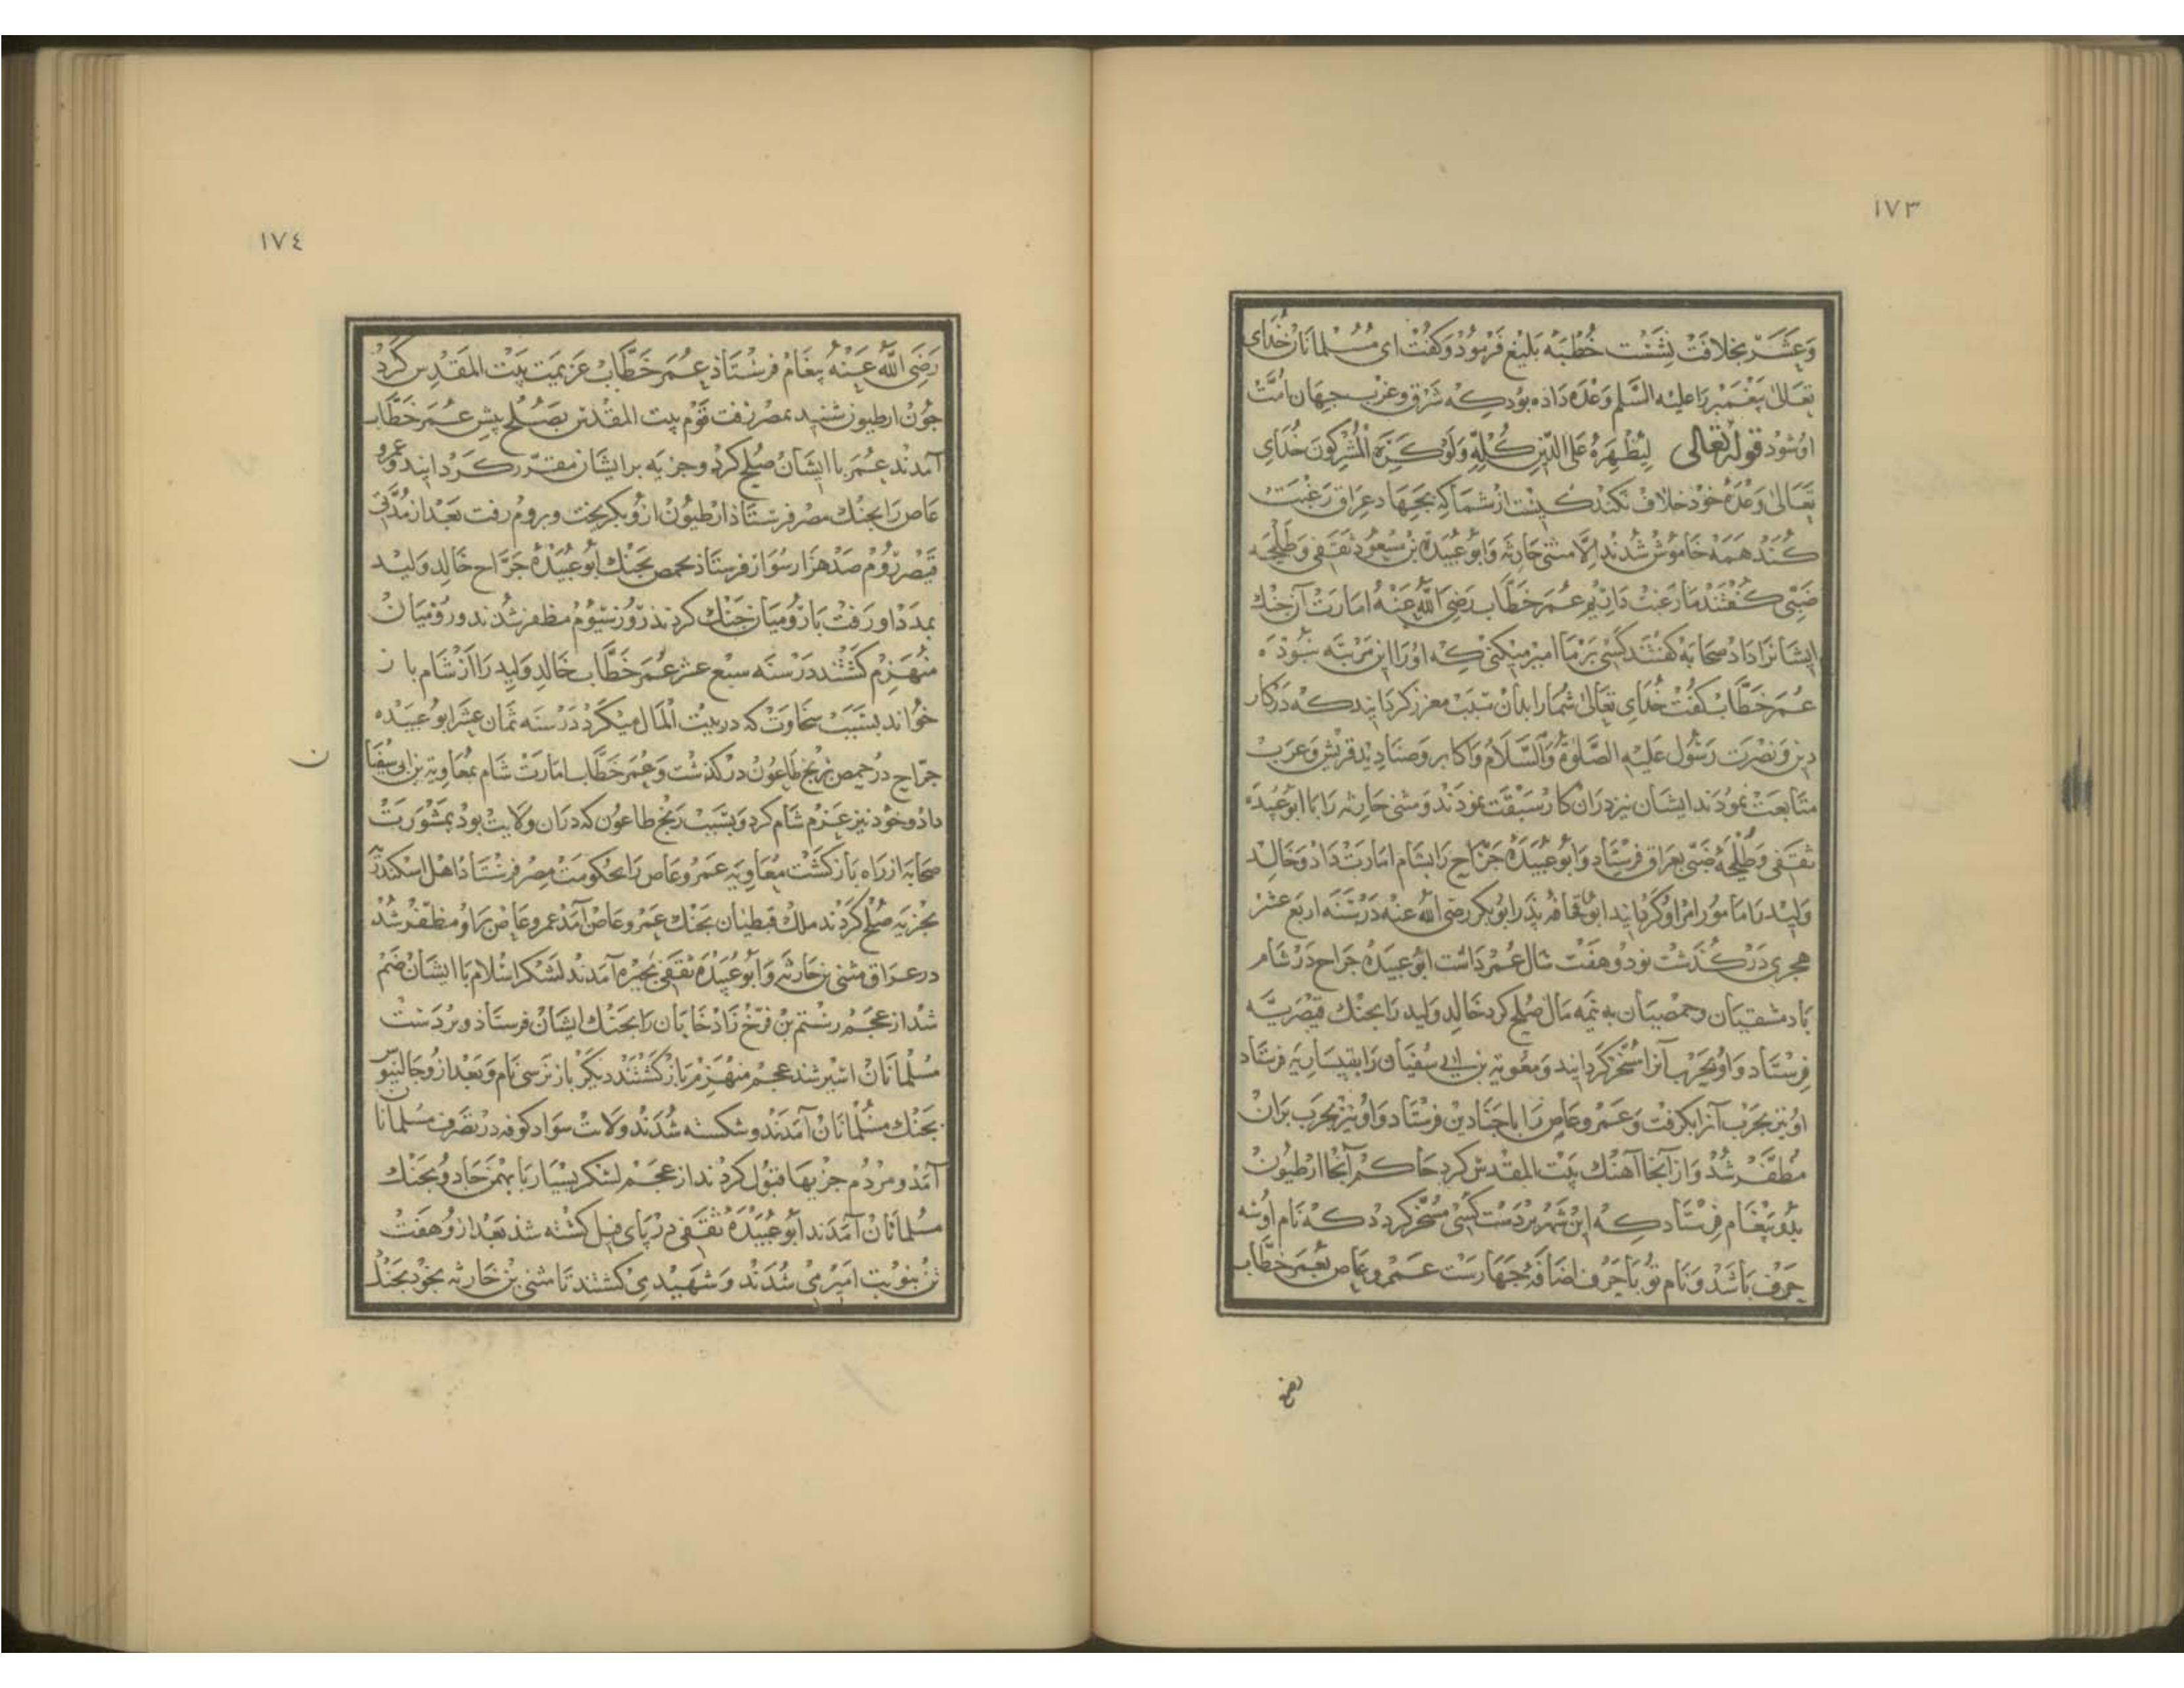 ١٧٣
وعشر بخلافت نشست خطبه بلیغ فرمود و کفت ای مسلمانان خدای
تعالی پیغمبر را علیه السلم وعده داده بود که شرق و غرب جهان امت
او شود قوله تعالی لیظهره علی الدین کله ولو کره المشرکون خدای
تعالی وعده خود خلاف نکند کیست از شما که بجهاد عراق رغبت
کند همه خاموش شدند الا مثنی حارثه و ابو عبیده بن مسعود ثقفی و طلحه
ضبی کفتند ما رغبت داریم عمر خطاب رضی الله عنه امارت آن جنك
ایشانرا داد صحابه کفتند کسی بر ما امیر میکنی که او را این مرتبه نبوده
عمر خطاب کفت خدای تعالی شما را بدان سبب معزز کردانید که در کار
دین و نصرت رسول علیه الصلوة والسلام و اکابر و صنادید قریش و عرب
متابعت نمودند ایشان نیز دران کار سبقت نمودند و مثنی حارثه را با ابو عبیده
ثقفی و طلحه ضبی بعراق فرستاد و ابو عبیده جراح را بشام امارت داد و خالد
ولید را مامور امر او کردانید ابو قحافه پدر ابو بکر رضی الله عنه در سنه اربع عشر
هجری در کذشت نود و هفت سال عمر داشت ابو عبیده جراح در شام
با دمشقیان و حمصیان به نیمه مال صلح کرد خالد ولید را بجنك قیصریه
فرستاد و او بحرب آنرا مسخر کردانید و معویة بن ابی سفیان را بقیساریه فرستاد
او نیز بحرب آنرا بکرفت و عمرو عاص را با جنادین فرستاد و او نیز بحرب بران
مظفر شد و از آنجا آهنك بیت المقدس کرد حاکم آنجا ارطیون
بدو پیغام فرستاد که این شهر بر دست کسی مسخر کردد که نام او سه
حرف باشد و نام تو با حرف اضافه چهارست عمرو عاص بعمر خطاب
رضی
١٧٤
رضی الله عنه پیغام فرستاذ عمر خطاب عزیمت بیت المقدس کرد
جون ارطیون شنید بمصر رفت قوم بیت المقدس بصلح پیش عمر خطاب
آمدند عمر با ایشان صلح کرد و جزیه بر ایشان مقرر کردانید و عمرو
عاص را بجنك مصر فرستاذ ارطیون ازو بکریخت و بروم رفت بعد از مدتی
قیصر روم صد هزار سوار فرستاذ بحمص بجنك ابو عبیده جراح خالد ولید
بمدد او رفت با رومیان جنك کردند روز سیوم مظفر شدند و رومیان
منهزم کشتند در سنه سبع عشر عمر خطاب خالد ولید را از شام باز
خواند بسبب سخاوت که در بیت المال میکرد در سنه ثمان عشر ابو عبیده
جراح در حمص برنج طاعون در کذشت و عمر خطاب امارت شام بمعاویة بن ابی سفیا
ن
داد و خود نیز عزم شام کرد و بسبب رنج طاعون که دران ولایت بود بمشورت
صحابه از راه باز کشت معاویه عمرو عاص را بحکومت مصر فرستاذ اهل اسکندریه
بجزیه صلح کردند ملك قبطیان بجنك عمرو عاص آمد عمرو عاص برو مظفر شد
در عراق مثنی بن حارثه و ابو عبیده ثقفی بحیره آمدند لشکر اسلام با ایشان ضم
شد از عجم رستم بن فرخ زاد خابان را بجنك ایشان فرستاذ و بر دست
مسلمانان اسیر شد عجم منهزم باز کشتند دیکر باز نرسی نام و بعد ازو جالینوس
بجنك مسلمانان آمدند و شکسته شدند ولایت سواد کوفه در تصرف مسلمانان
آمد و مردم جزیها قبول کردند از عجم لشکر بسیار با بهمن جادو بجنك
مسلمانان آمدند ابو عبیده ثقفی در پای فیل کشته شذ بعد ازو هفت
تن بنوبت امیر می شدند و شهید می کشتند تا مثنی بن حارثه بخود بجند